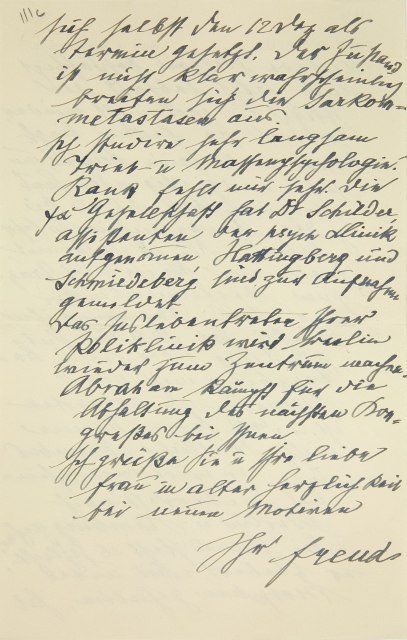 IIIc
sich selbst den 12 Dez als
Termin gesetzt. Der Zustand
ist nicht klar wahrscheinlich
breiten sich die Sarkom-
metastasen aus.
Ich studire sehr langsam
Trieb- u Massenpsychologie.
Rank fehlt mir sehr. Die
ψα Gesellschaft hat Dr Schilder,
Assistenten der psych Klinik
aufgenomen, Hattingberg und
Schmiedeberg sind zur Aufnahme
gemeldet
Das Insleben treten Ihrer
Poliklinik wird Berlin
wieder zum Zentrum machen.
Abraham kämpft für die
Abhaltung des nächsten Kon-
greßes bei Ihnen
Ich grüße Sie u Ihre liebe
Frau in alter Herzlichkeit
bei neuen Motiven
Ihr Freud